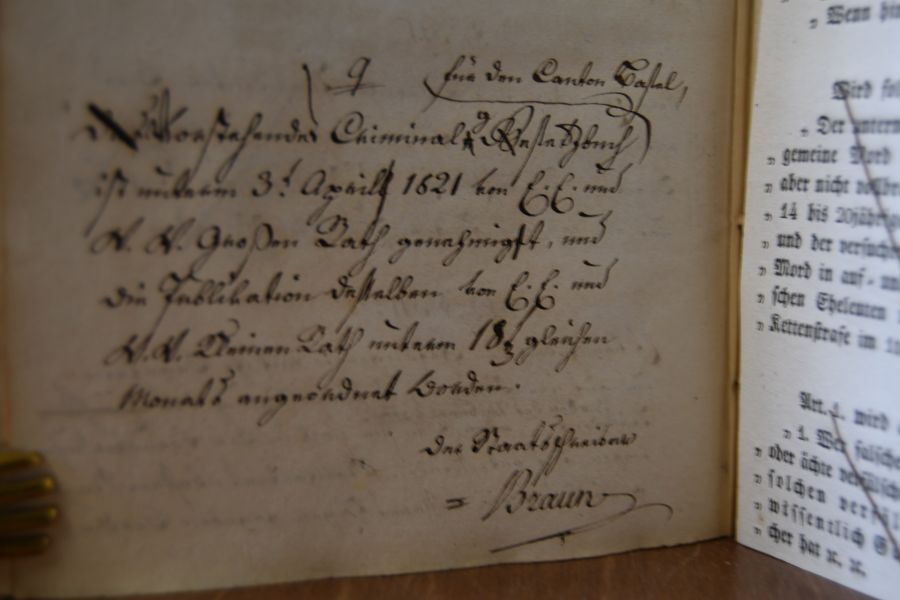 9
für den Canton Basel,
Vorstehendes Criminal Gesetzbuch
ist unterm 3t. April 1821 von E. E. und
W. W. Großen Rath genehmigt, und
die Publikation desselben von E. E. und
W. W. Kleinen Rath unterm 18t gleichen
Monats angeordnet worden.
der Staatsschreiber
= Braun
„ Wenn
Wird
„ Der
„ gemeine Mord
„ aber nicht
„ 14 bis 20jährige
„ und der
„ Mord in auf-
„ schen Eheleuten
„ Kettenstrafe im
Art. 1. wird
„ 1. Wer falsche
„ oder ächte
„ solchen
„ wissentlich
„ cher hat ꝛc. ꝛc.